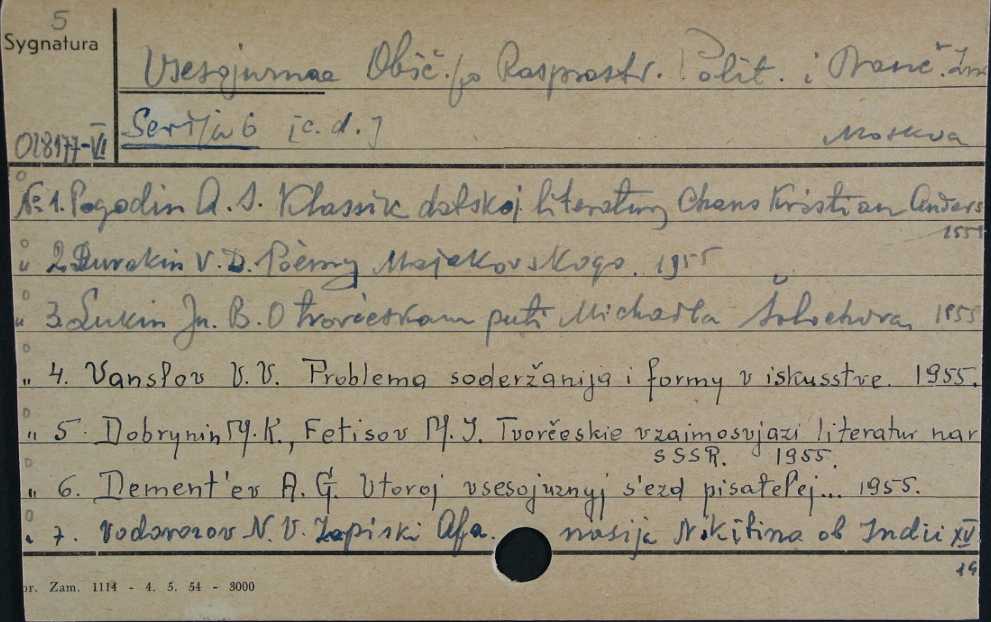 5
Sygnatura
Vsesojuznae Obšč. po Rasprostr. Polit. i Nauč. Zn
018177-VI
Serija 6 [c.d.]
Moskva
№ 1. Pogodin A. S. Klassik datskoj literatury Chans Kristian Anders
1955
" 2. Duvakin V. D. Poèmy Majakovskogo. 1955
" 3. Lukin Ju. B. O tvorčeskom puti Michaiła Šołochova, 1955
" 4. Vansłov V. V. Problema soderžanija i formy v iskusstve. 1955.
" 5. Dobrynin M. K., Fetisov M. I. Tvorčeskie vzaimosvjazi literatur nar
SSSR. 1955.
" 6. Dement'ev A. G. Vtoroj vsesojuznyj s'ezd pisatełej... 1955.
" 7. Vodovozov N. V. Zapiski Afa. nasija Nikitina ob Indii XV
19
or. Zam. 1114 - 4. 5. 54 - 3000